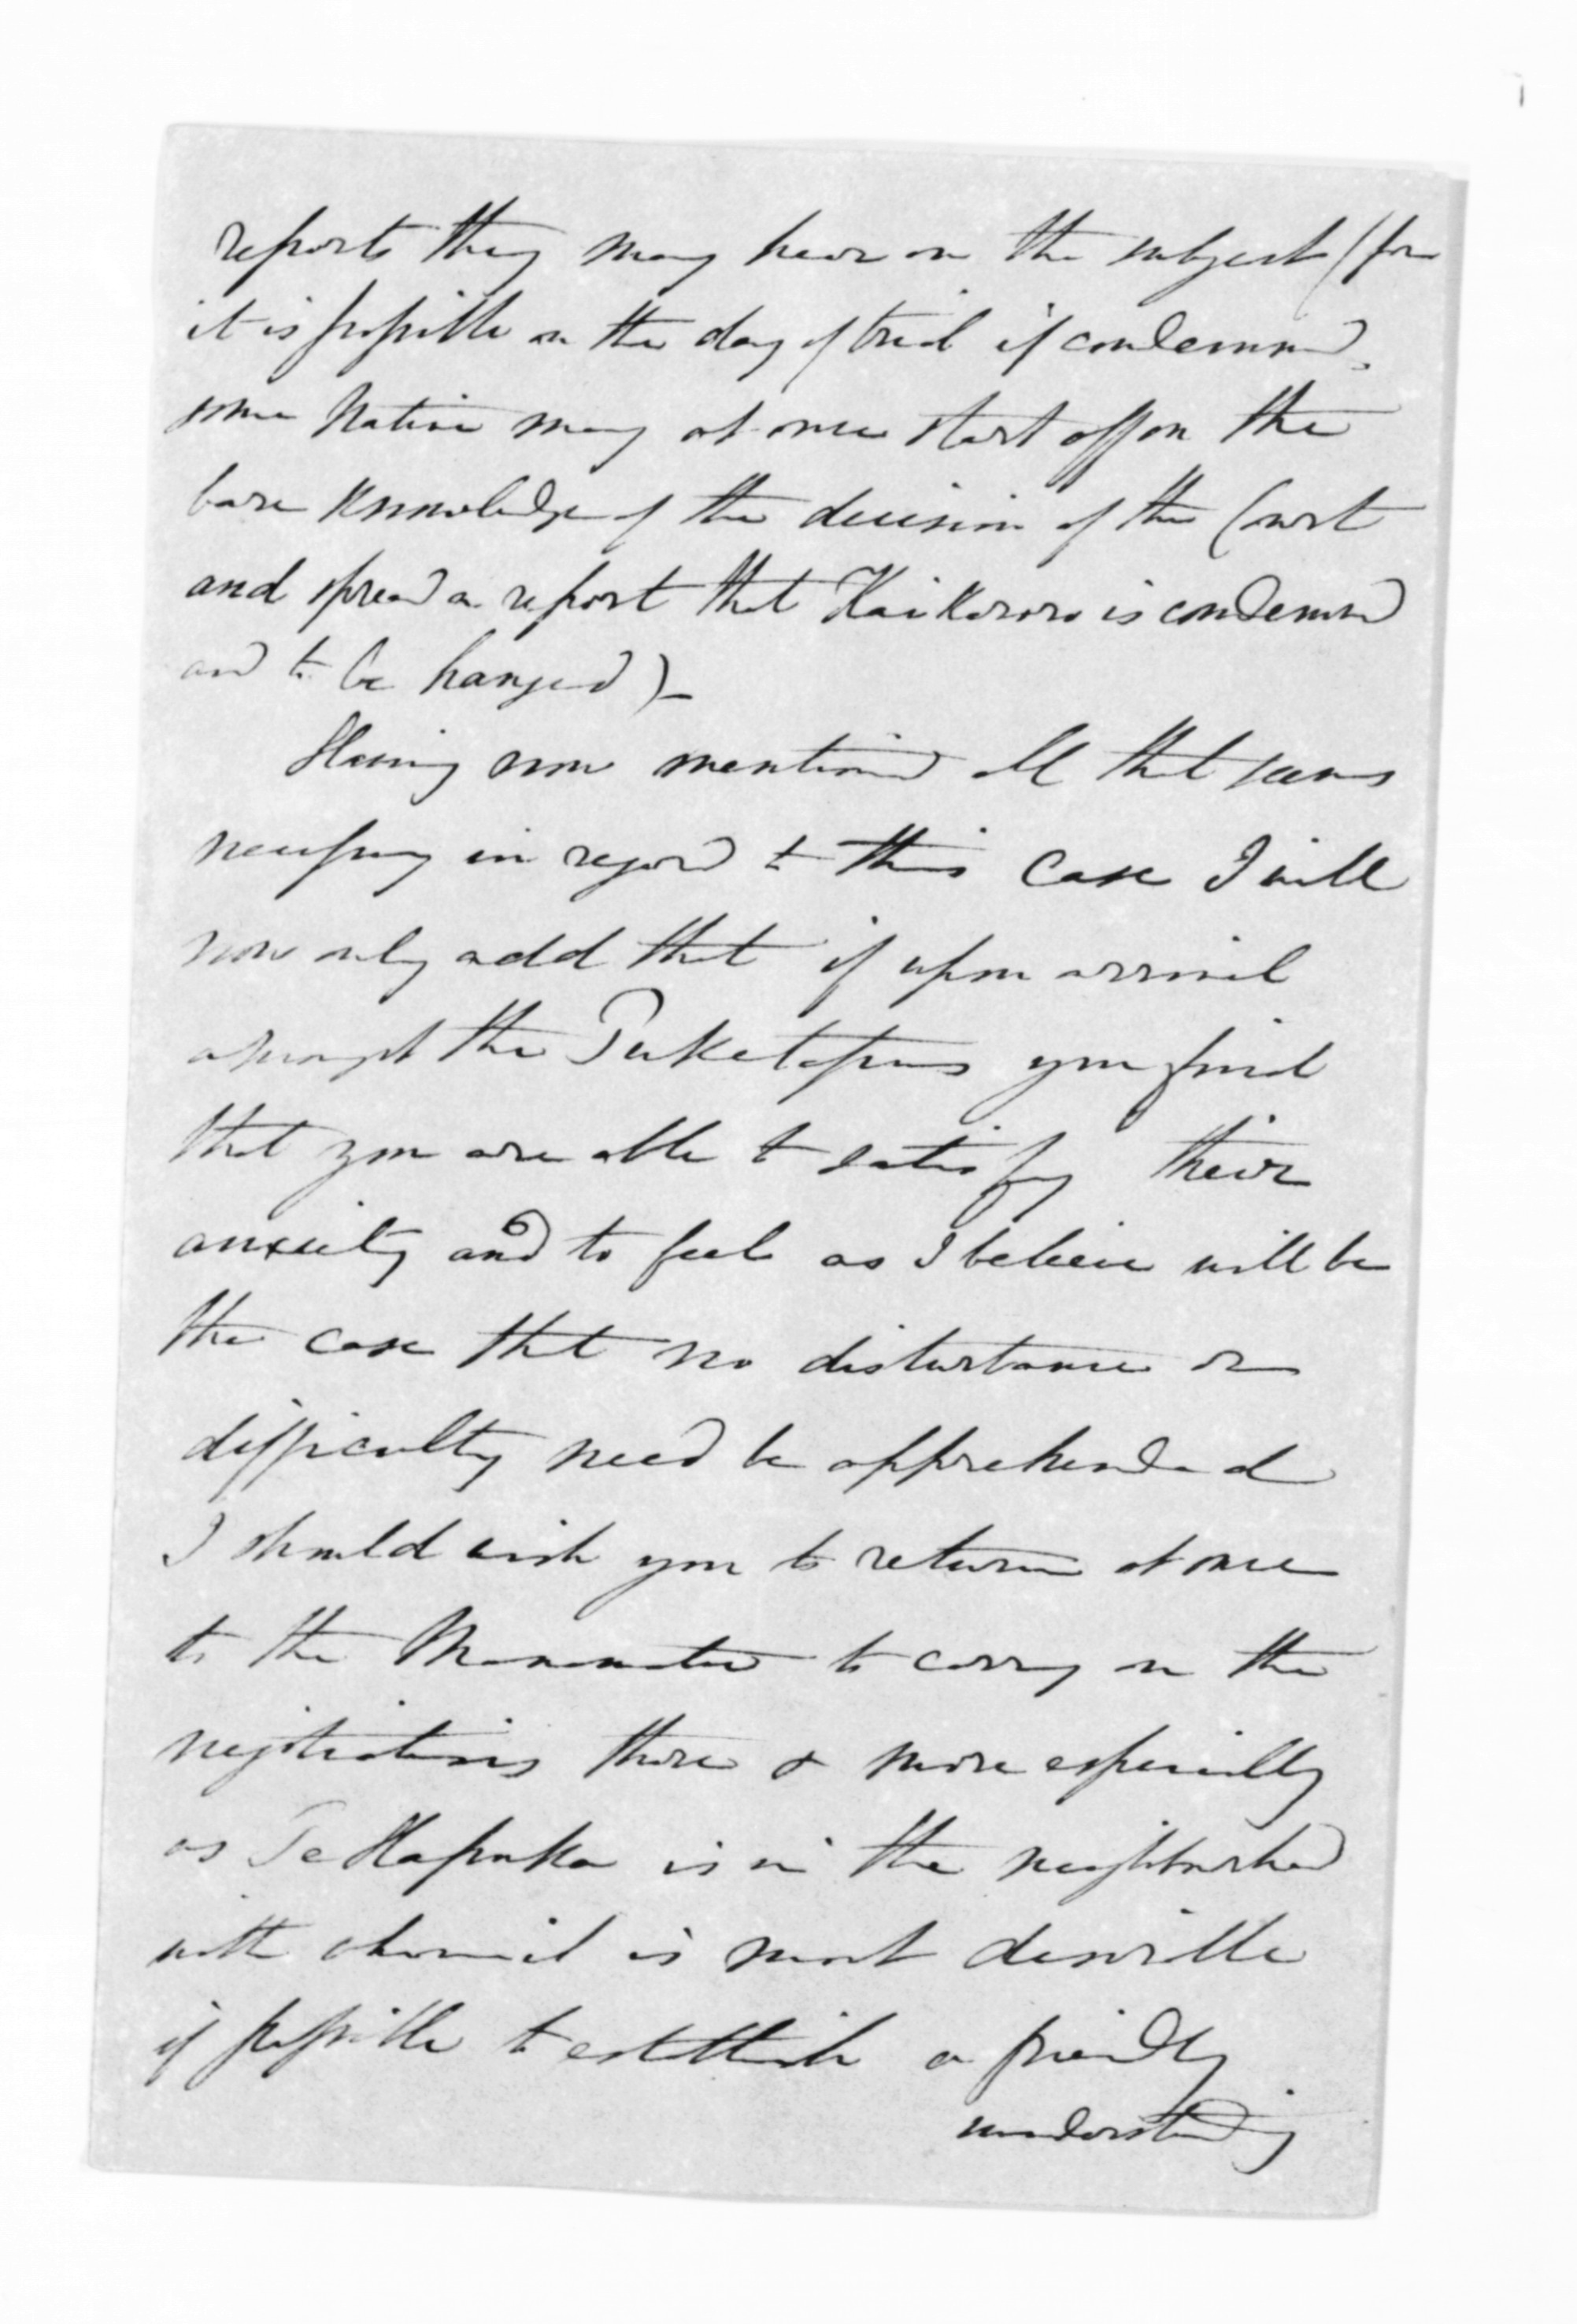 reports they may hear on the subject (for
it is possible on the day of trial if condemned,
some Native may at once start off on the
bare knowledge of the decision of the Court
and spread a report that Kaikororo is condemned
and to be hanged)_
Having now mentioned all that seems
necessary in regard to this case I will
now only add that if upon arrival
amongst the Puketapus you find
that you are able to satisfy their
anxiety and to feel as I believe will be
the case that no disturbance or
difficulty need be apprehended
I should wish you to return at once
to the Manawatu to carry on the
negotiations there & more especially
as Te Hapuku is in the neighbourhood
with whom it is most desirable
if possible to establish a friendly
understanding